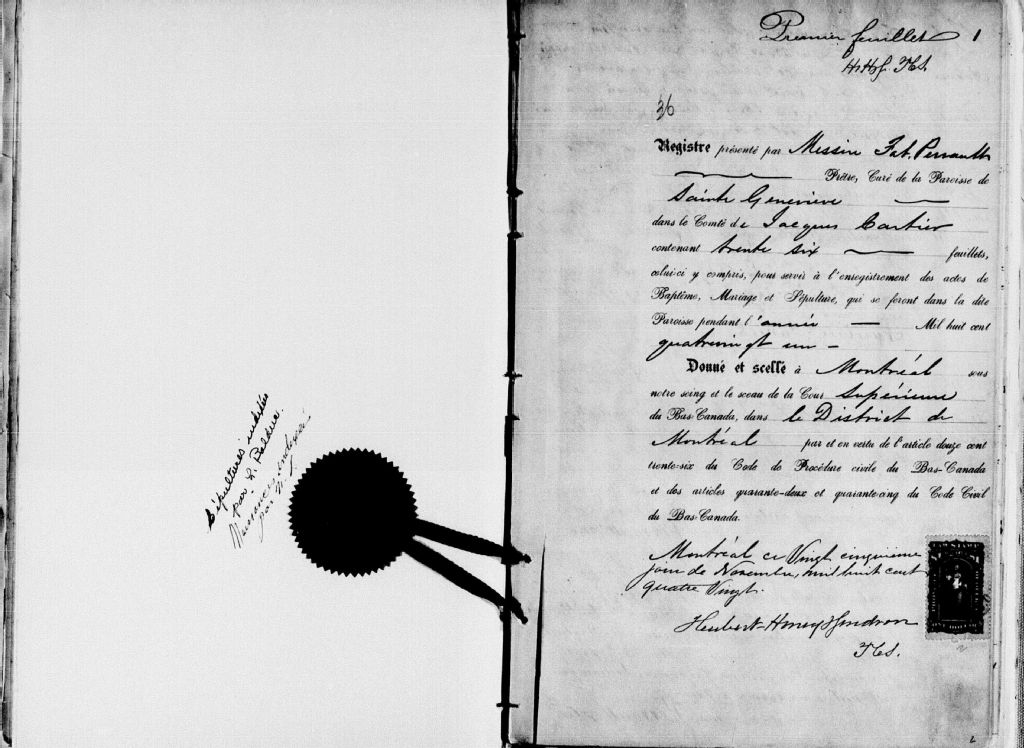 Sépultures indexées
par L. Paldeus.
Naissances
par
Premier feuillet 1
36
Registre présenté par Messire Fab. Perrault
Prêtre, Curé de la Paroisse de
Sainte Geneviève
dans le Comté de Jacques Cartier
contenant trente six feuillets,
celui-ci y compris, pour servir à l'enregistrement des actes de
Baptême, Mariage et Sépulture, qui se feront dans la dite
Paroisse pendant l'année Mil huit cent
quatrevingt un
Donné et scellé à Montréal sous
notre seing et le sceau de la Cour Supérieure
du Bas-Canada, dans le District de
Montréal par et en vertu de l'article douze cent
trente-six du Code de Procédure civile du Bas-Canada
et des articles quarante-deux et quarante-cinq du Code Civil
du Bas-Canada.
Montréal ce Vingt cinquième
jour de Novembre, mil huit cent
quatre Vingt.
2